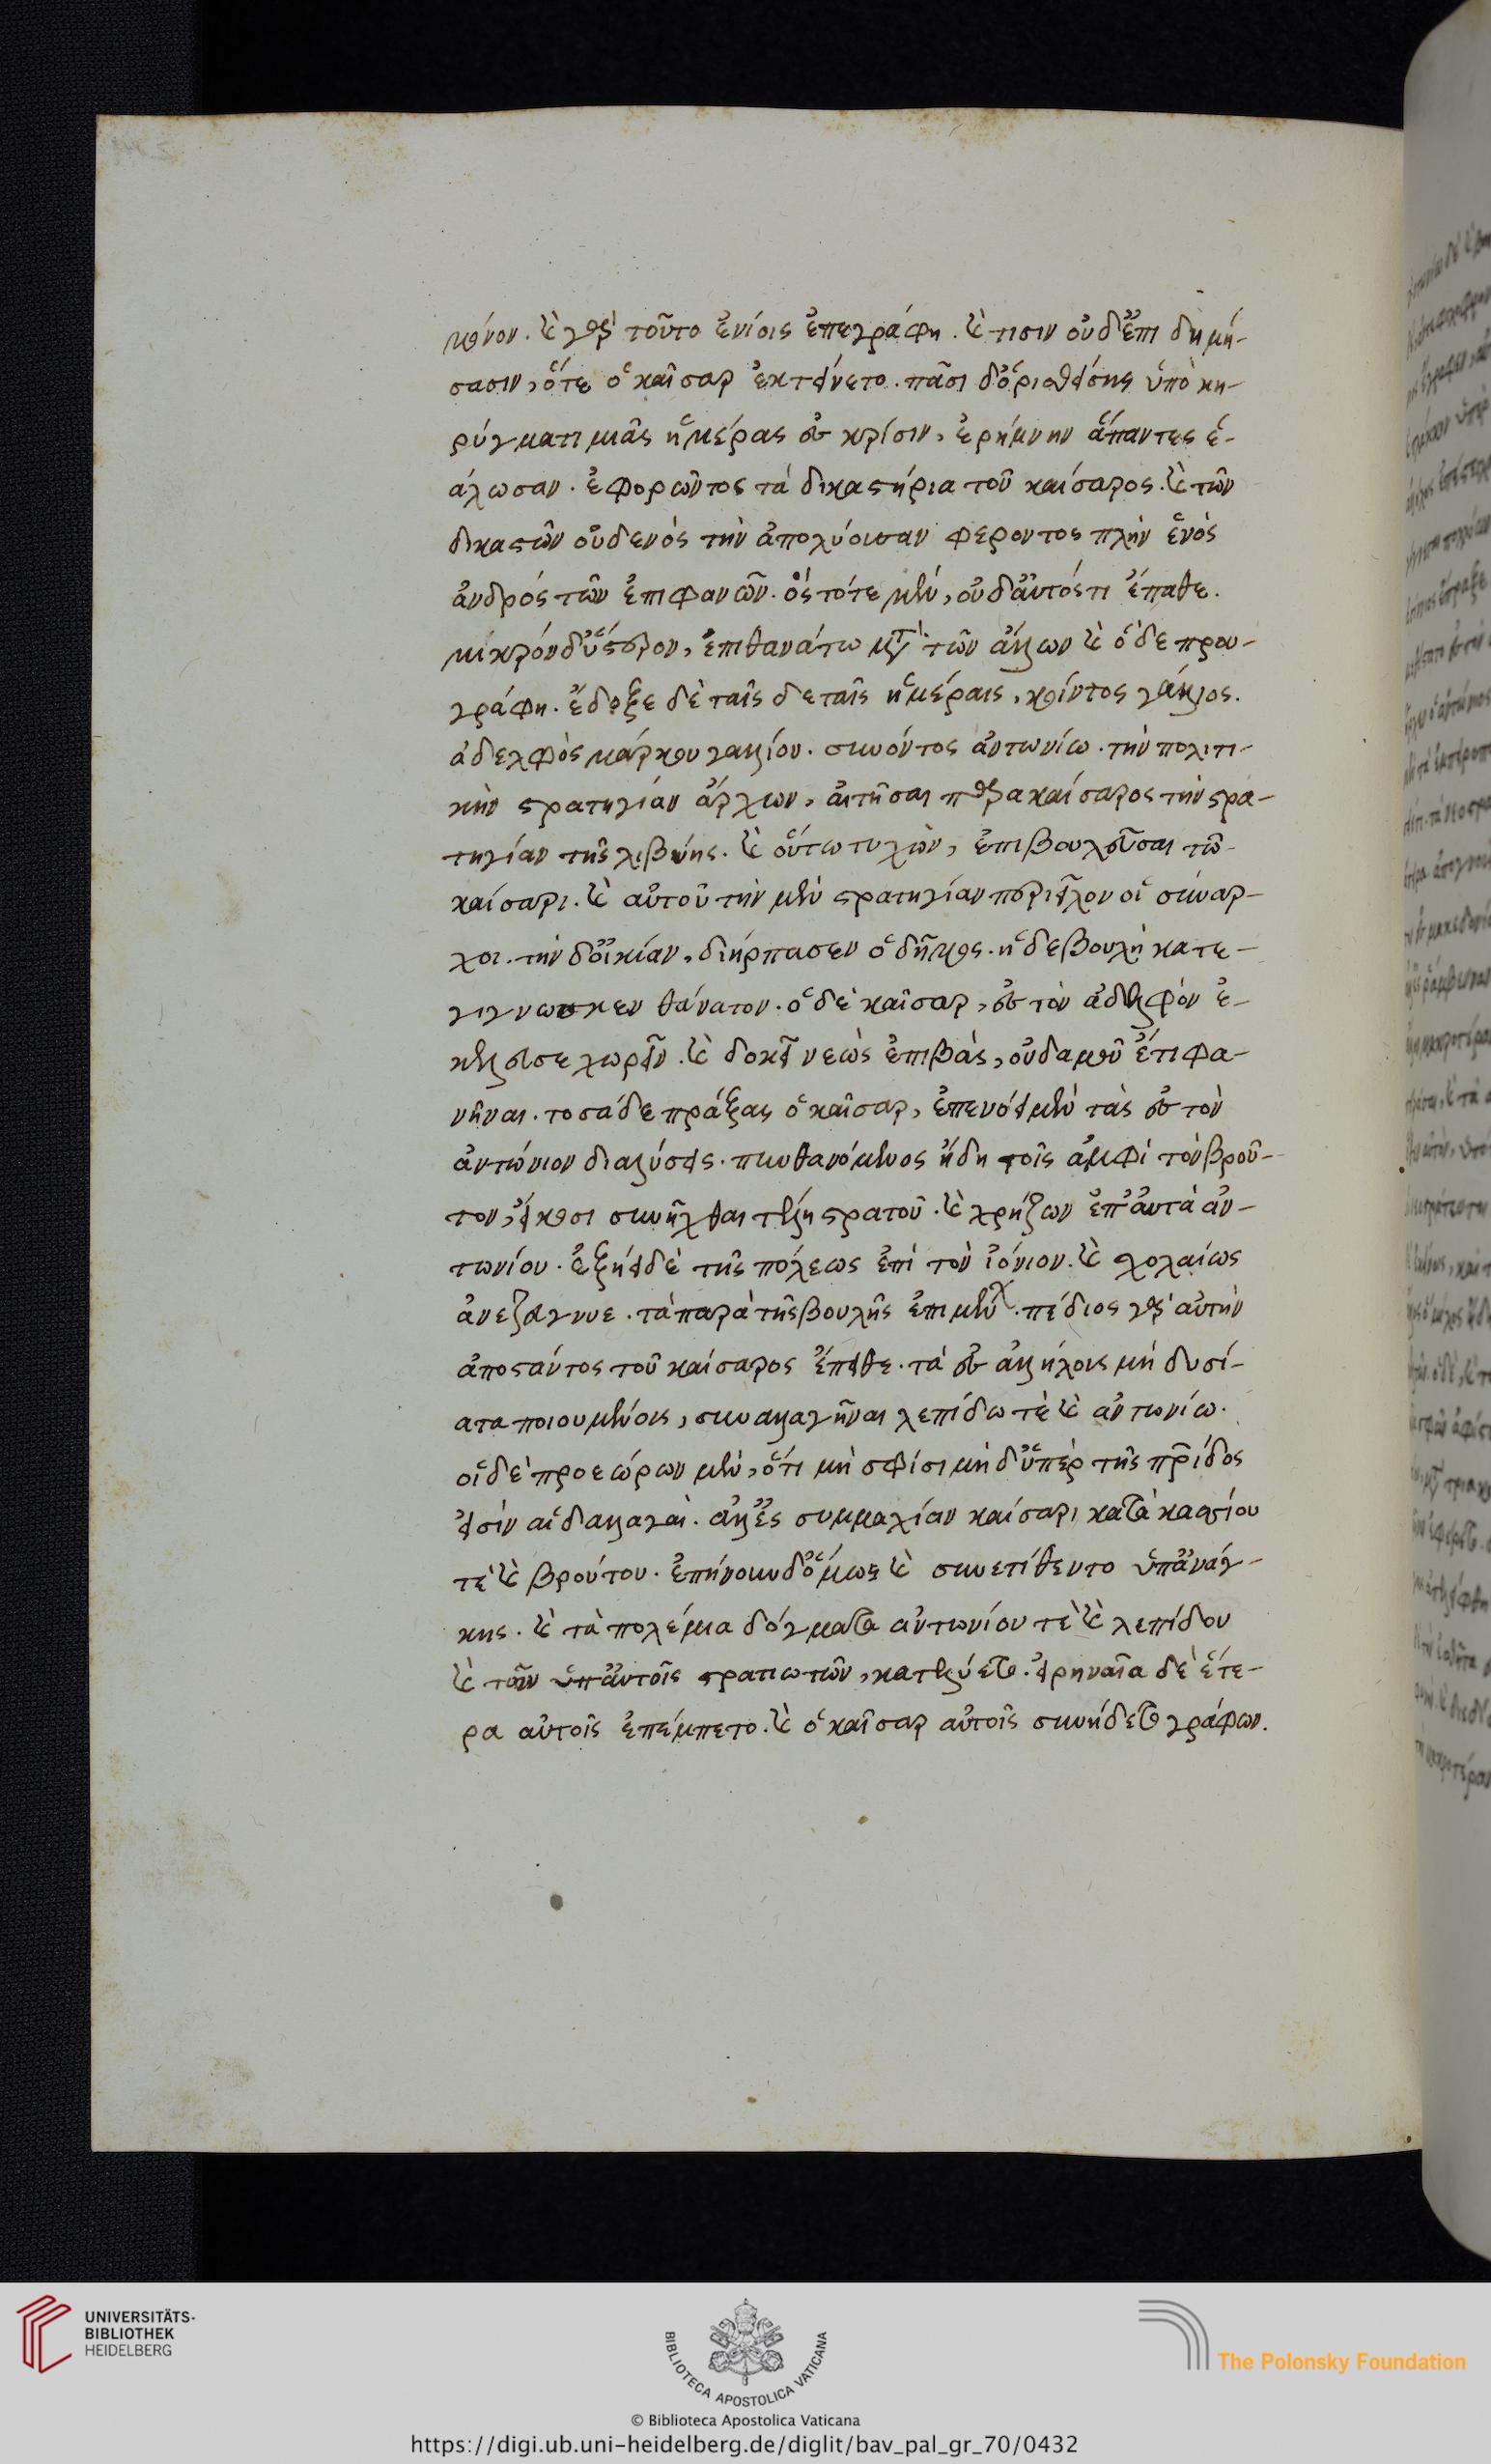 μόνον. καὶ γὰρ τοῦτο ἐνίοις ἐπεγράφη. καί τισιν οὐδ' ἐπιδημή-
σασιν, ὅτε ὁ καῖσαρ ἐκτείνετο. πᾶσι δ' ὁρισθείσης ὑπὸ κη-
ρύγματι μιᾶς ἡμέρας ἐς κρίσιν, ἐρήμην ἅπαντες ἑ-
άλωσαν. ἐφορῶντος τὰ δικαστήρια τοῦ καίσαρος. καὶ τῶν
δικαστῶν οὐδενὸς τὴν ἀπολύουσαν φέροντος πλὴν ἑνὸς
ἀνδρὸς τῶν ἐπιφανῶν. ὃς τότε μὲν, οὐδ' αὐτός τι ἔπαθε.
μικρὸν δ' ὕστερον, ἐπὶ θανάτω μετὰ τῶν ἄλλων καὶ ὅδε πρου-
γράφη. ἔδοξε δὲ ταῖσδε ταῖς ἡμέραις, κόιντος γάλλιος.
ἀδελφὸς μάρκου γαλλίου. συνόντος ἀντωνίω. τὴν πολιτι-
κὴν στρατηγίαν ἄρχων, αἰτῆσαι παρὰ καίσαρος τὴν στρα-
τηγίαν τῆς λιβύης. καὶ οὕτω τυχὼν, ἐπιβουλεῦσαι τῶ
καίσαρι. καὶ αὐτοῦ τὴν μὲν στρατηγίαν περιεῖλον οἱ σύναρ-
χοι. τὴν δ' οἰκίαν, διήρπασεν ὁ δῆμος. ἡ δὲ βουλὴ κατε-
γιγνωσκεν θάνατον. ὁ δὲ καῖσαρ, ἐς τὸν ἀδελφὸν ἐ-
κέλευσε χωρεῖν. καὶ δοκεῖ νεὼς ἐπιβὰς, οὐδαμοῦ ἔτι φα-
νῆναι. τοσάδε πράξας ὁ καῖσαρ, ἐπενόει μὲν τὰς ἐς τὸν
ἀντώνιον διαλύσεις. πυνθανόμενος ἤδη τοῖς ἀμφὶ τὸν βροῦ-
τον, εἴκοσι συνῆχθαι τέλη στρατοῦ. καὶ χρήζων ἐπ' αὐτὰ ἀν-
τωνίου. ἐξήει δὲ τῆς πόλεως ἐπὶ τὸν ἰόνιον. καὶ σχολαίως
ἀνεζεύγνυε. τὰ παρὰ τῆς βουλῆς ἐπιμένων. πέδιος γὰρ αὐτὴν
ἀποστάντος τοῦ καίσαρος ἔπειθε. τὰ ἐς ἀλλήλους μὴ δυσί-
ατα ποιουμένους, συναλλαγῆναι λεπίδω τὲ καὶ ἀντωνίω.
οἱ δὲ προεώρων μὲν, ὅτι μὴ σφίσι μὴδ' ὑπὲρ τῆς πατρίδος
εἰσὶν αἱ διαλλαγαὶ. ἀλλ' ἐς συμμαχίαν καίσαρι κατὰ κασσίου
τὲ καὶ βρούτου. ἐπήνουν δ' ὅμως καὶ συνετίθεντο ὑπ' ἀνάγ-
κης. καὶ τὰ πολέμια δόγματα ἀντωνίου τὲ καὶ λεπίδου
καὶ τῶν ὑπ' αὐτοῖς στρατιωτῶν, κατελύετο. εἰρηναῖα δὲ ἕτε-
ρα αὐτοῖς ἐπέμπετο. καὶ ὁ καῖσαρ αὐτοῖς συνήδετο γράφων.
UNIVERSITÄTS-
BIBLIOTHEK
HEIDELBERG
BIBLIOTECA APOSTOLICA VATICANA
The Polonsky Foundation
© Biblioteca Apostolica Vaticana
https://digi.ub.uni-heidelberg.de/diglit/bav_pal_gr_70/0432